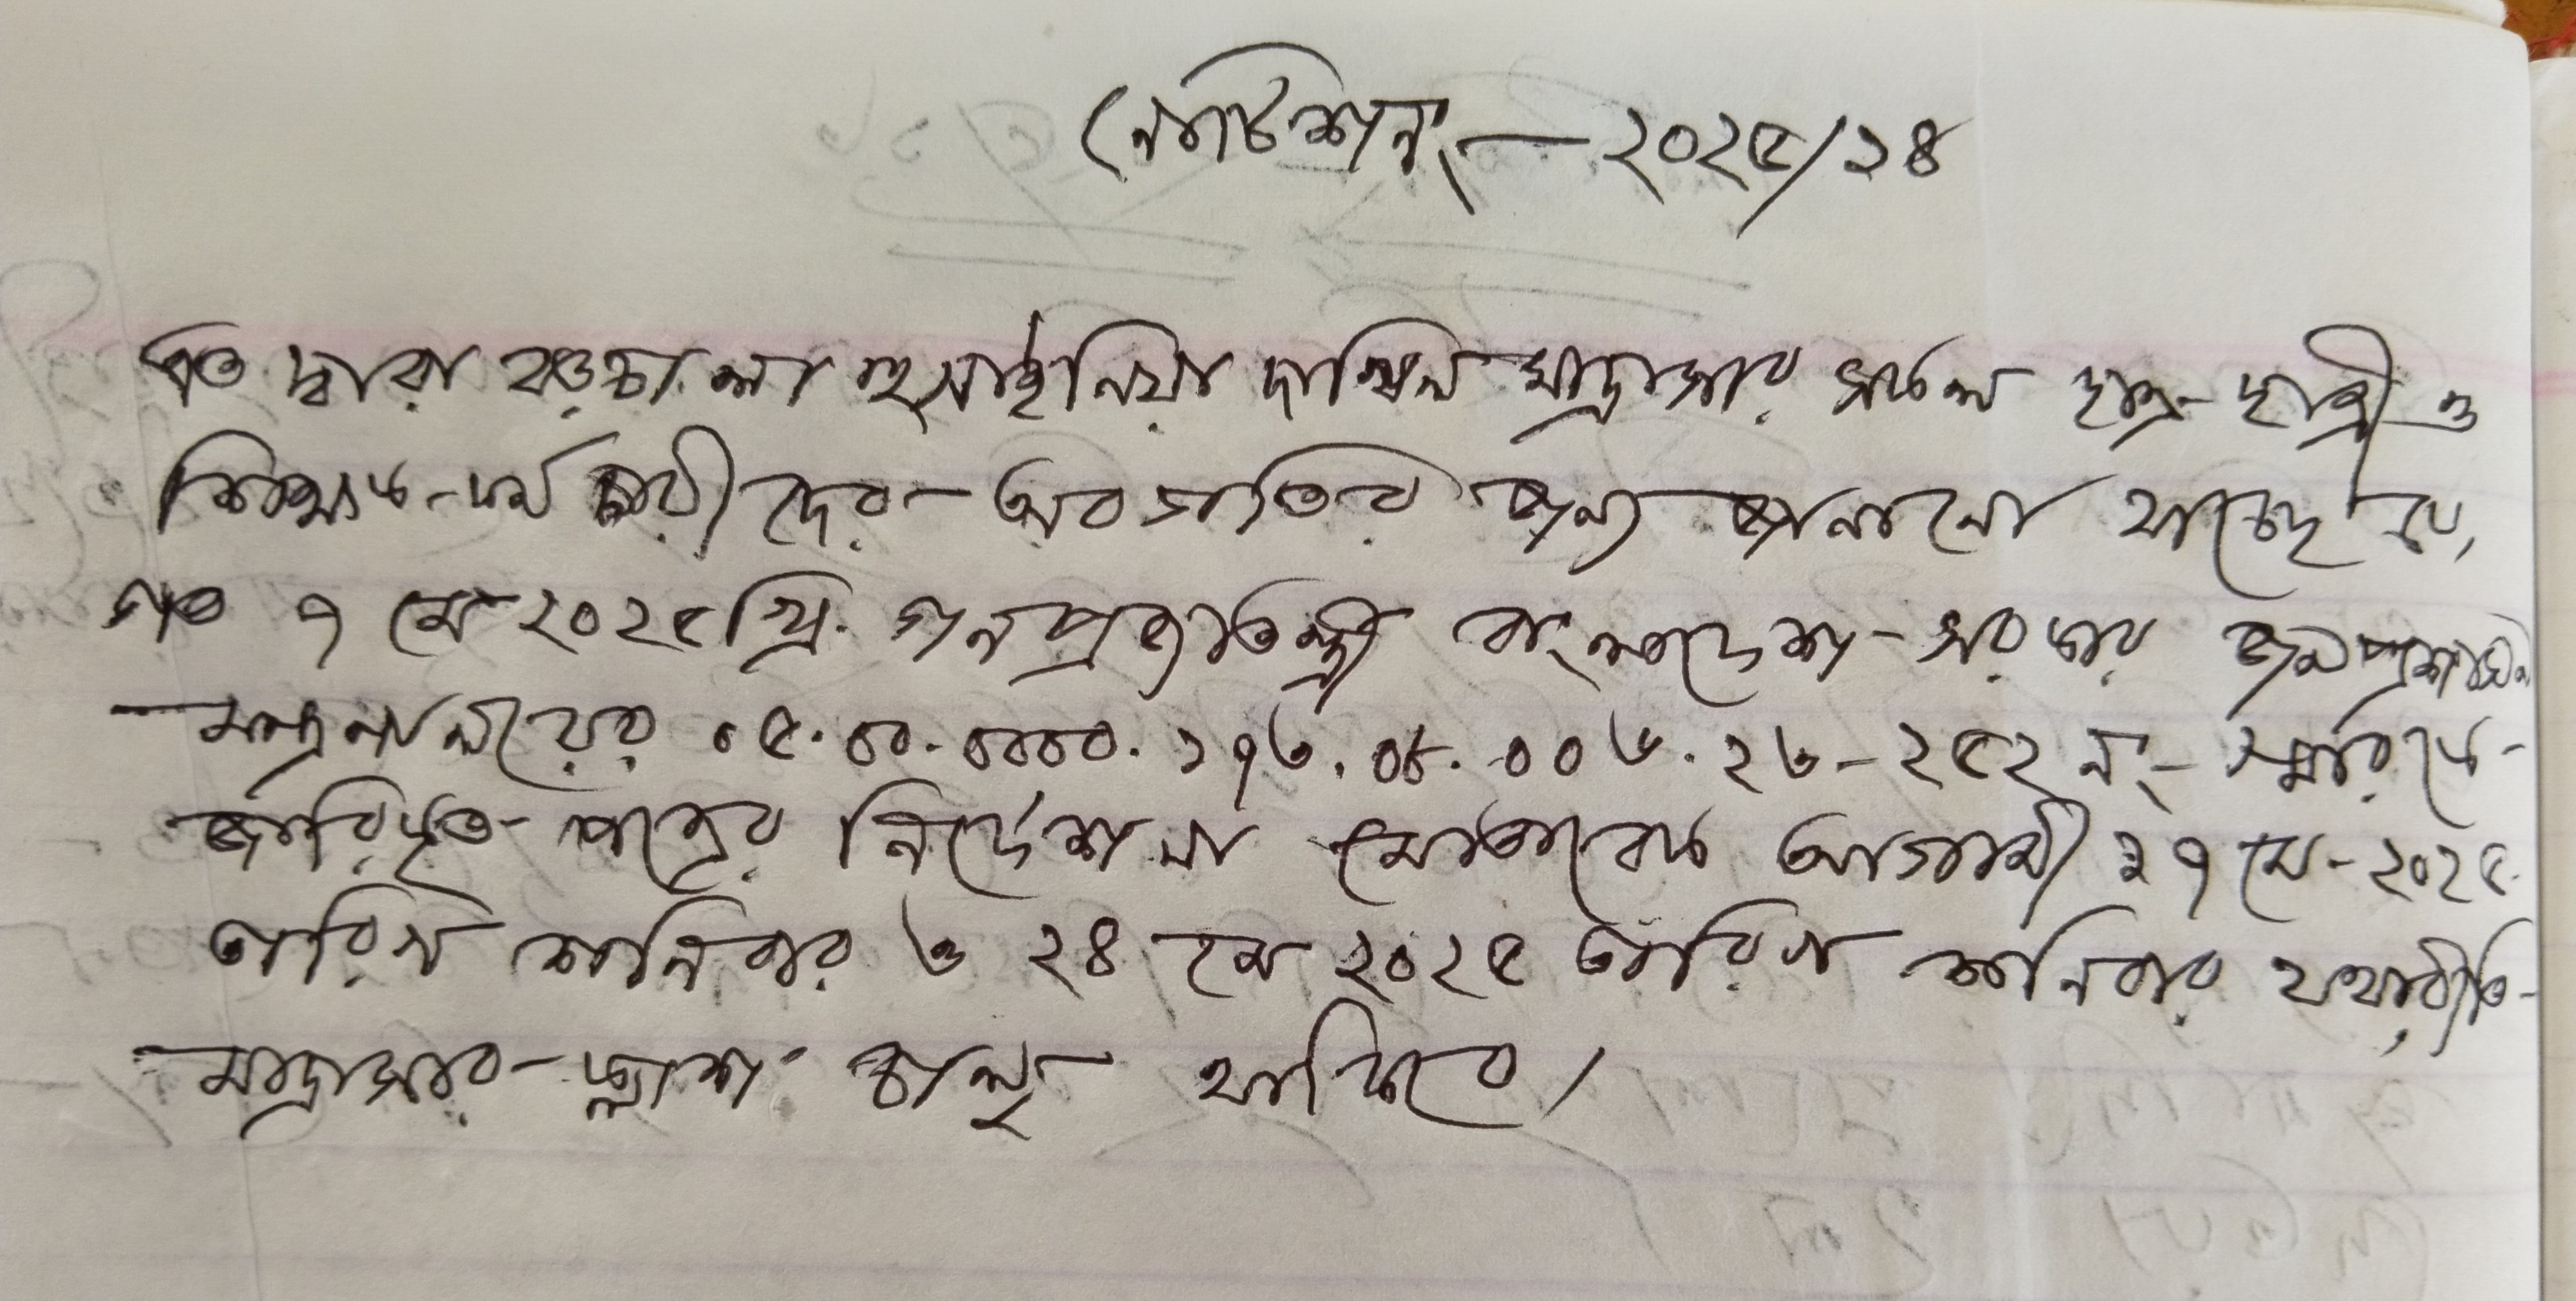 নোটিশ নং — ২০২৫/১৪
এত দ্বারা হুসাইনিয়া দাখিল মাদ্রাসার সকল ছাত্র-ছাত্রী ও
শিক্ষক-কর্মচারী দের - অবগতির জন্য জানানো যাচ্ছে যে,
গত ৭ মে ২০২৫ খ্রি. গনপ্রজাতন্ত্রী বাংলাদেশ - সরকার জনপ্রশাসন
মন্ত্রনালয়ের ০৫.০০.০০০০.১৭৩.০৮.০০৬.২৩-২৫২ নং - স্মারকে -
জারিকৃত - পত্রের নির্দেশনা মোতাবেক আগামী ১৭ মে - ২০২৫
তারিখ শনিবার ও ২৪ মে ২০২৫ তারিখ শনিবার যথারীতি -
মাদ্রাসার - ক্লাশ চালু থাকিবে।